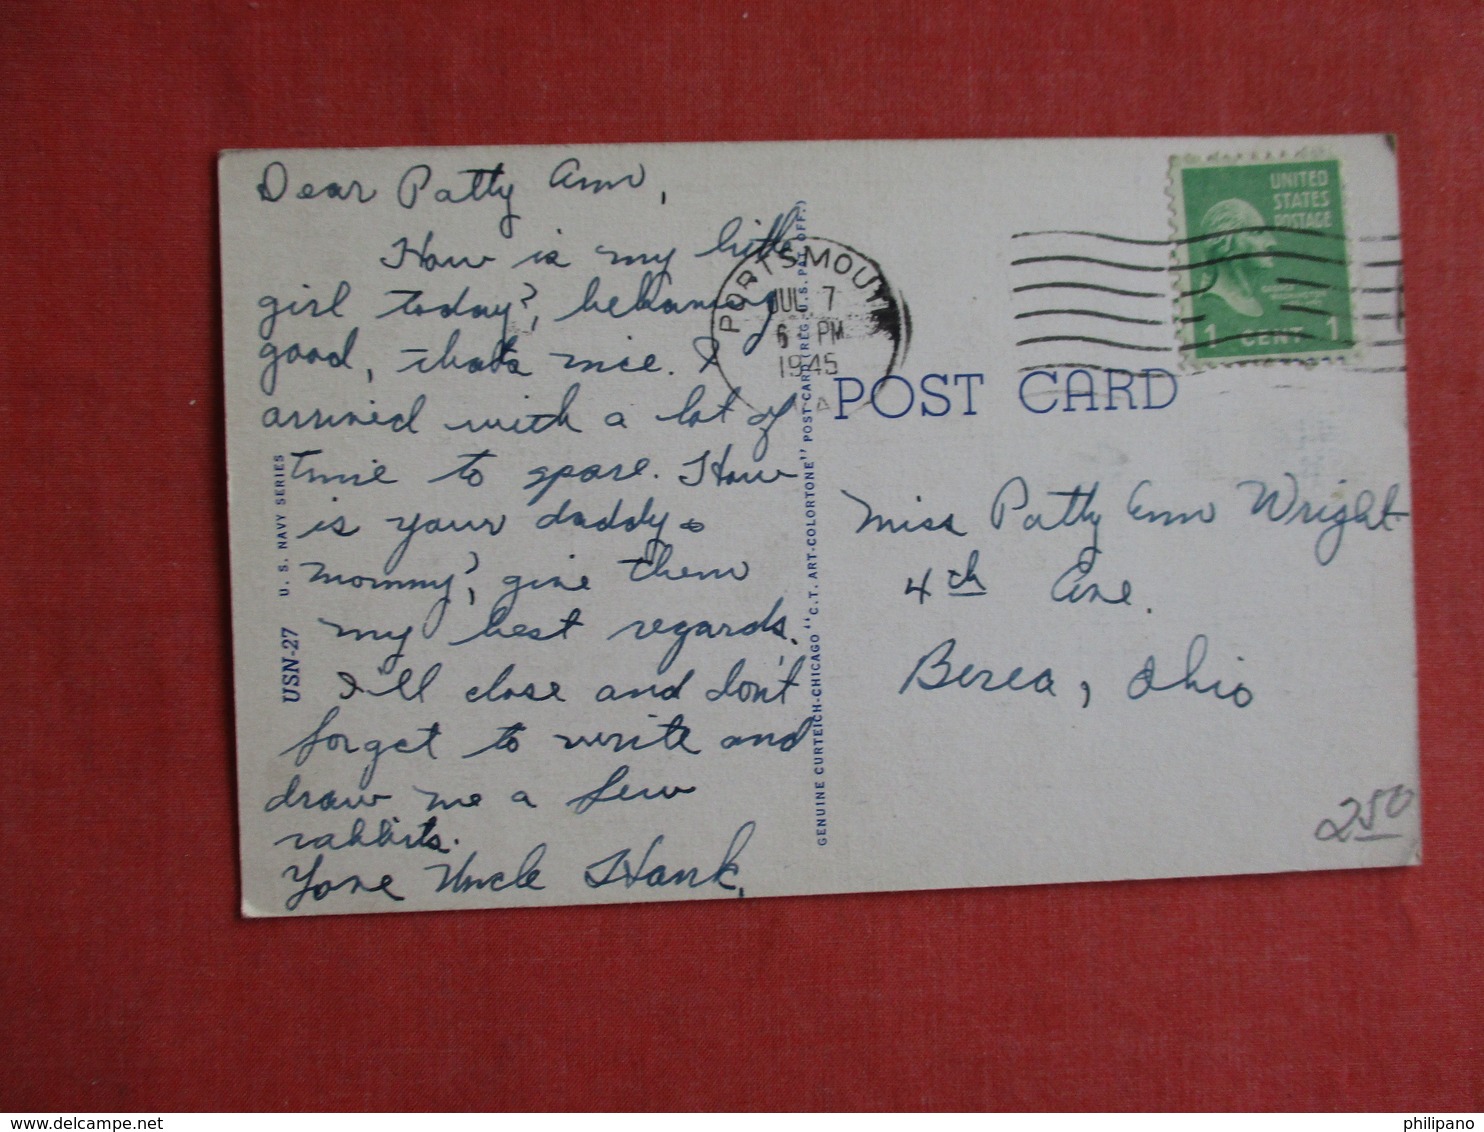 Dear Patty Ann,
How is my little
girl today?, behaving
good, thats nice. I
arrived with a lot of
time to spare. How
is your daddy &
mommy?, give them
my best regards.
I'll close and don't
forget to write and
draw me a few
rabbits.
Your Uncle Hank.
USN-27 U. S. NAVY SERIES
GENUINE CURTEICH-CHICAGO "C. T. ART-COLORTONE" POST CARD (REG. U. S. PAT. OFF.)
PORTSMOUTH
JUL 7
6 PM
1945
UNITED
STATES
POSTAGE
1 CENT 1
POST CARD
Miss Patty Ann Wright
4th Ave.
Berea, Ohio
250
www.delcampe.net
philipano